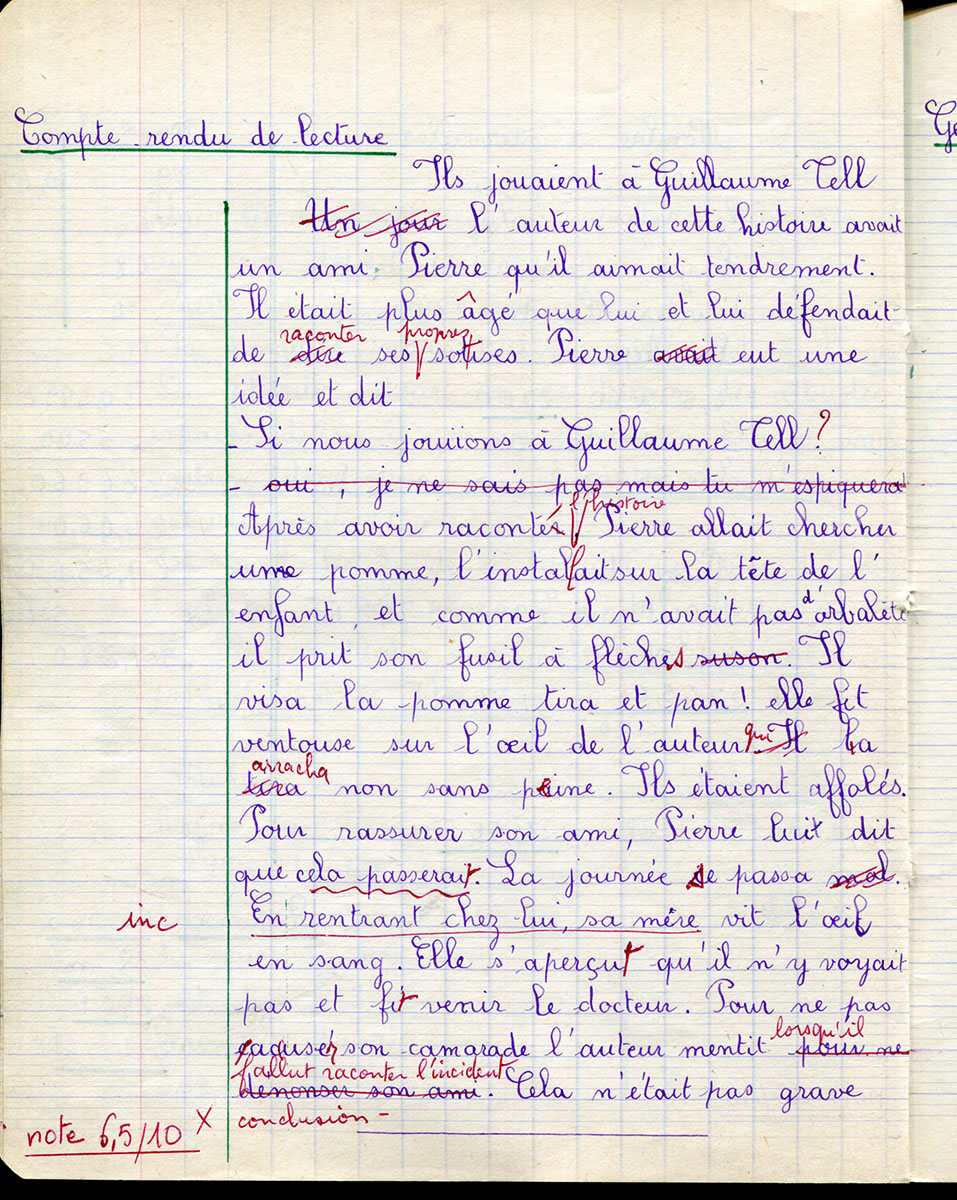 Compte rendu de lecture
Ge
Ils jouaient à Guillaume Tell
Un jour l'auteur de cette histoire avait
un ami Pierre qu'il aimait tendrement.
Il était plus âgé que lui et lui défendait
raconter propres
de dire ses sottises. Pierre avait eut une
idée et dit
- Si nous jouiions à Guillaume Tell ?
- oui, je ne sais pas mais tu m'espiquera
l'histoire
Après avoir racontér Pierre allait chercher
une pomme, l'installait sur la tête de l'
enfant, et comme il n'avait pas d'arbalète
il prit son fusil à flèches suson. Il
visa la pomme tira et pan ! elle fit
ventouse sur l'œil de l'auteur qui Il la
arracha
tira non sans peine. Ils étaient affolés.
Pour rassurer son ami, Pierre luit dit
que cela passerait. La journée se passa mal.
inc
En rentrant chez lui, sa mère vit l'œil
en sang. Elle s'aperçut qu'il n'y voyait
pas et fit venir le docteur. Pour ne pas
lorsqu'il
son camarade l'auteur mentit pour ne
fallut raconter l'incident
denonser son ami. Cela n'était pas grave
conclusion -
note 6,5/10 X